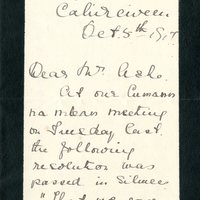 Cahirciveen
Oct. 5th 1917
Dear Mr Ashe.
At our Cumann
na mban meeting
on Tuesday last
the following
resolution was
passed in silence
"That we